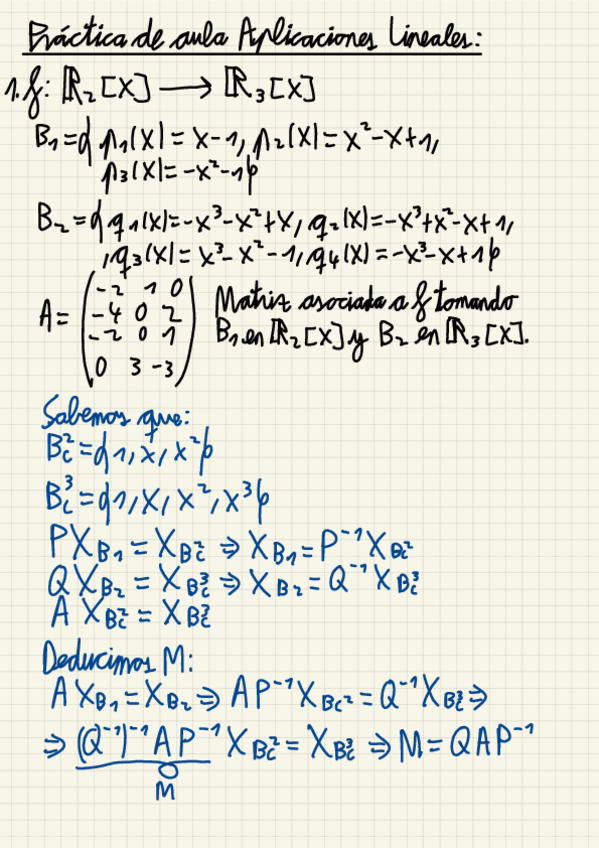 Práctica de aula Aplicaciones Lineales:
1. f: ℝ₂[X] ⟶ ℝ₃[X]
B₁={p₁(X)=X-1, p₂(X)=X²-X+1,
p₃(X)=-X²-1}
B₂={q₁(X)=-X³-X²+X, q₂(X)=-X³+X²-X+1,
,q₃(X)=X³-X²-1, q₄(X)=-X³-X+1}
-2 1 0
A= -4 0 2 Matriz asociada a f tomando
-2 0 1 B₁ en ℝ₂[X] y B₂ en ℝ₃[X].
0 3 -3
Sabemos que:
B_C²={1, X, X²}
B_C³={1, X, X², X³}
PX_B₁ = X_B_C² ⇒ X_B₁ = P⁻¹X_B_C²
QX_B₂ = X_B_C³ ⇒ X_B₂ = Q⁻¹X_B_C³
A X_B_C² = X_B_C³
Deducimos M:
A X_B₁ = X_B₂ ⇒ AP⁻¹X_B_C² = Q⁻¹X_B_C³ ⇒
⇒ (Q⁻¹)⁻¹AP⁻¹X_B_C² = X_B_C³ ⇒ M = QAP⁻¹
M